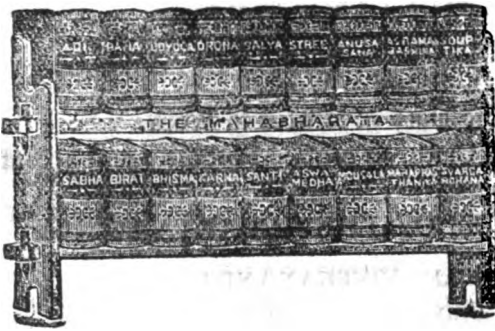 ADI BANA UDYOGA DRONA SALYA STREE ANUSA SANA ASRAMA BASHIKA SOUP TIKA
THE MAHABHARATA
SABHA BIRAT BHISMA KARNA SANTI ASWA MEDHA MOUSOLA MAHAPRAS THANIKA SWARGA